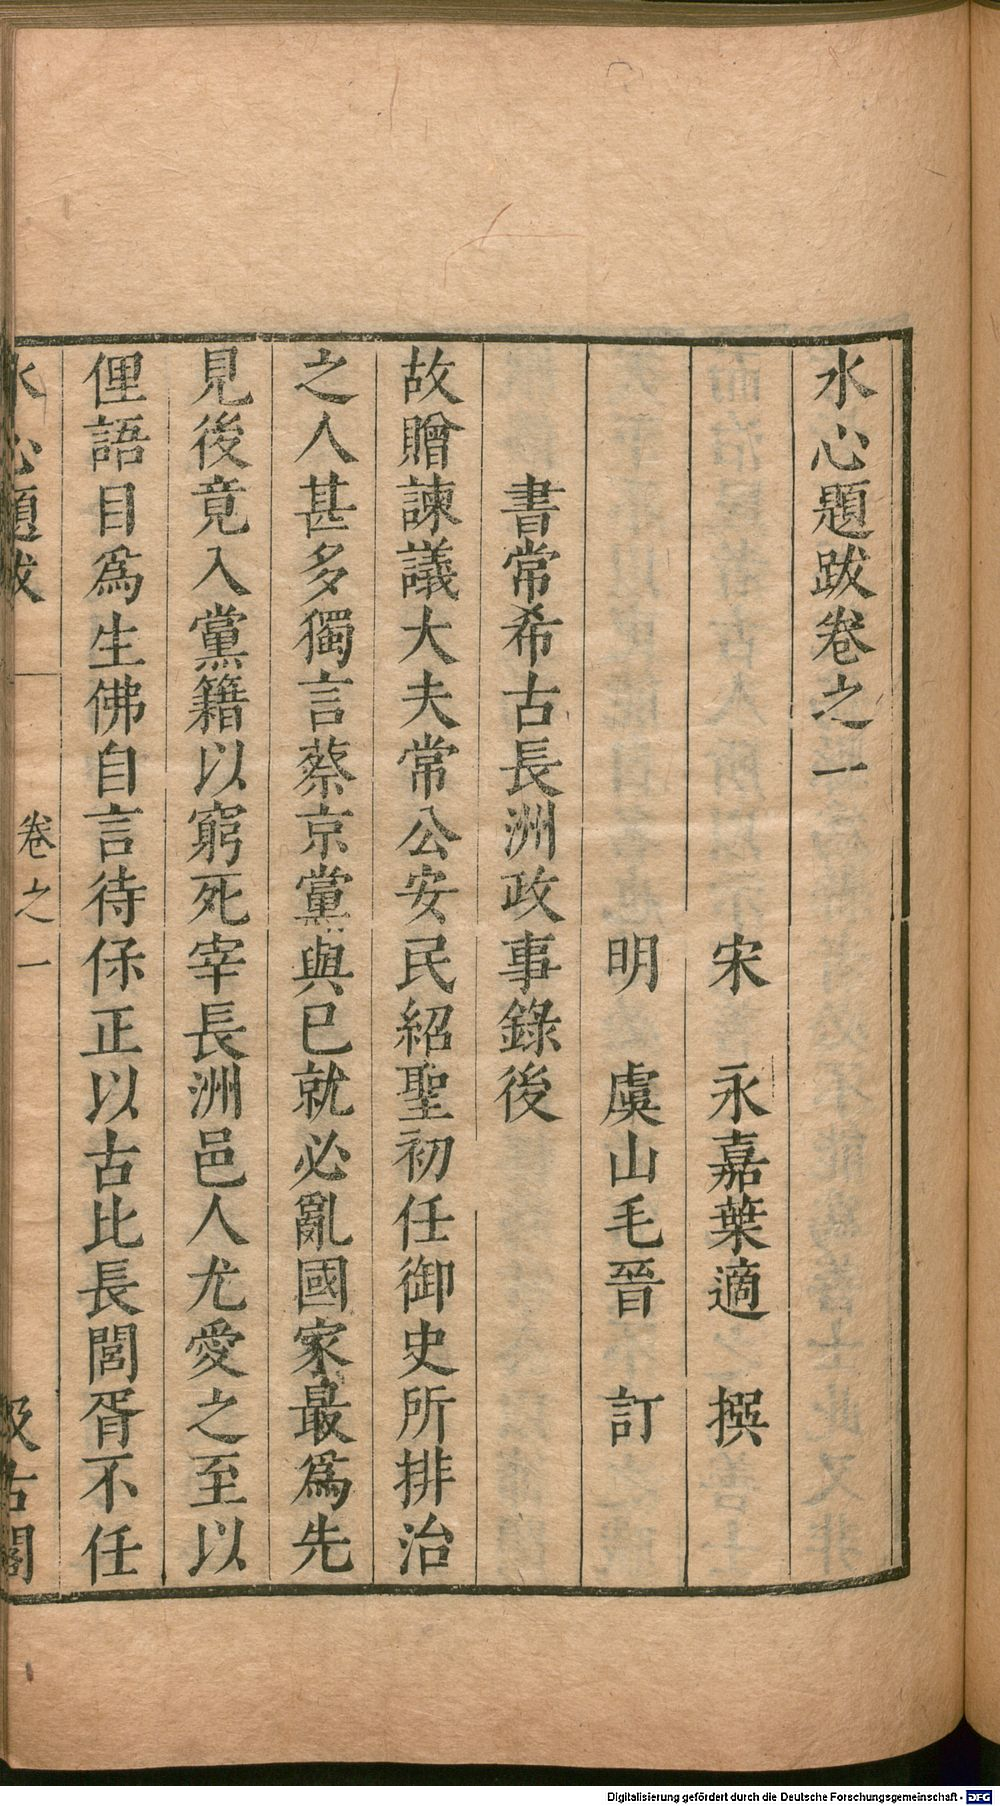 水心題跋卷之一
宋　永嘉葉適　撰
明　虞山毛晉　訂
書常希古長洲政事錄後
故贈諫議大夫常公安民紹聖初任御史所排治
之人甚多獨言蔡京黨與已就必亂國家最爲先
見後竟入黨籍以窮死宰長洲邑人尤愛之至以
俚語目爲生佛自言待保正以古比長閭胥不任
水心題跋　卷之一　汲古閣
Digitalisierung gefördert durch die Deutsche Forschungsgemeinschaft - DFG